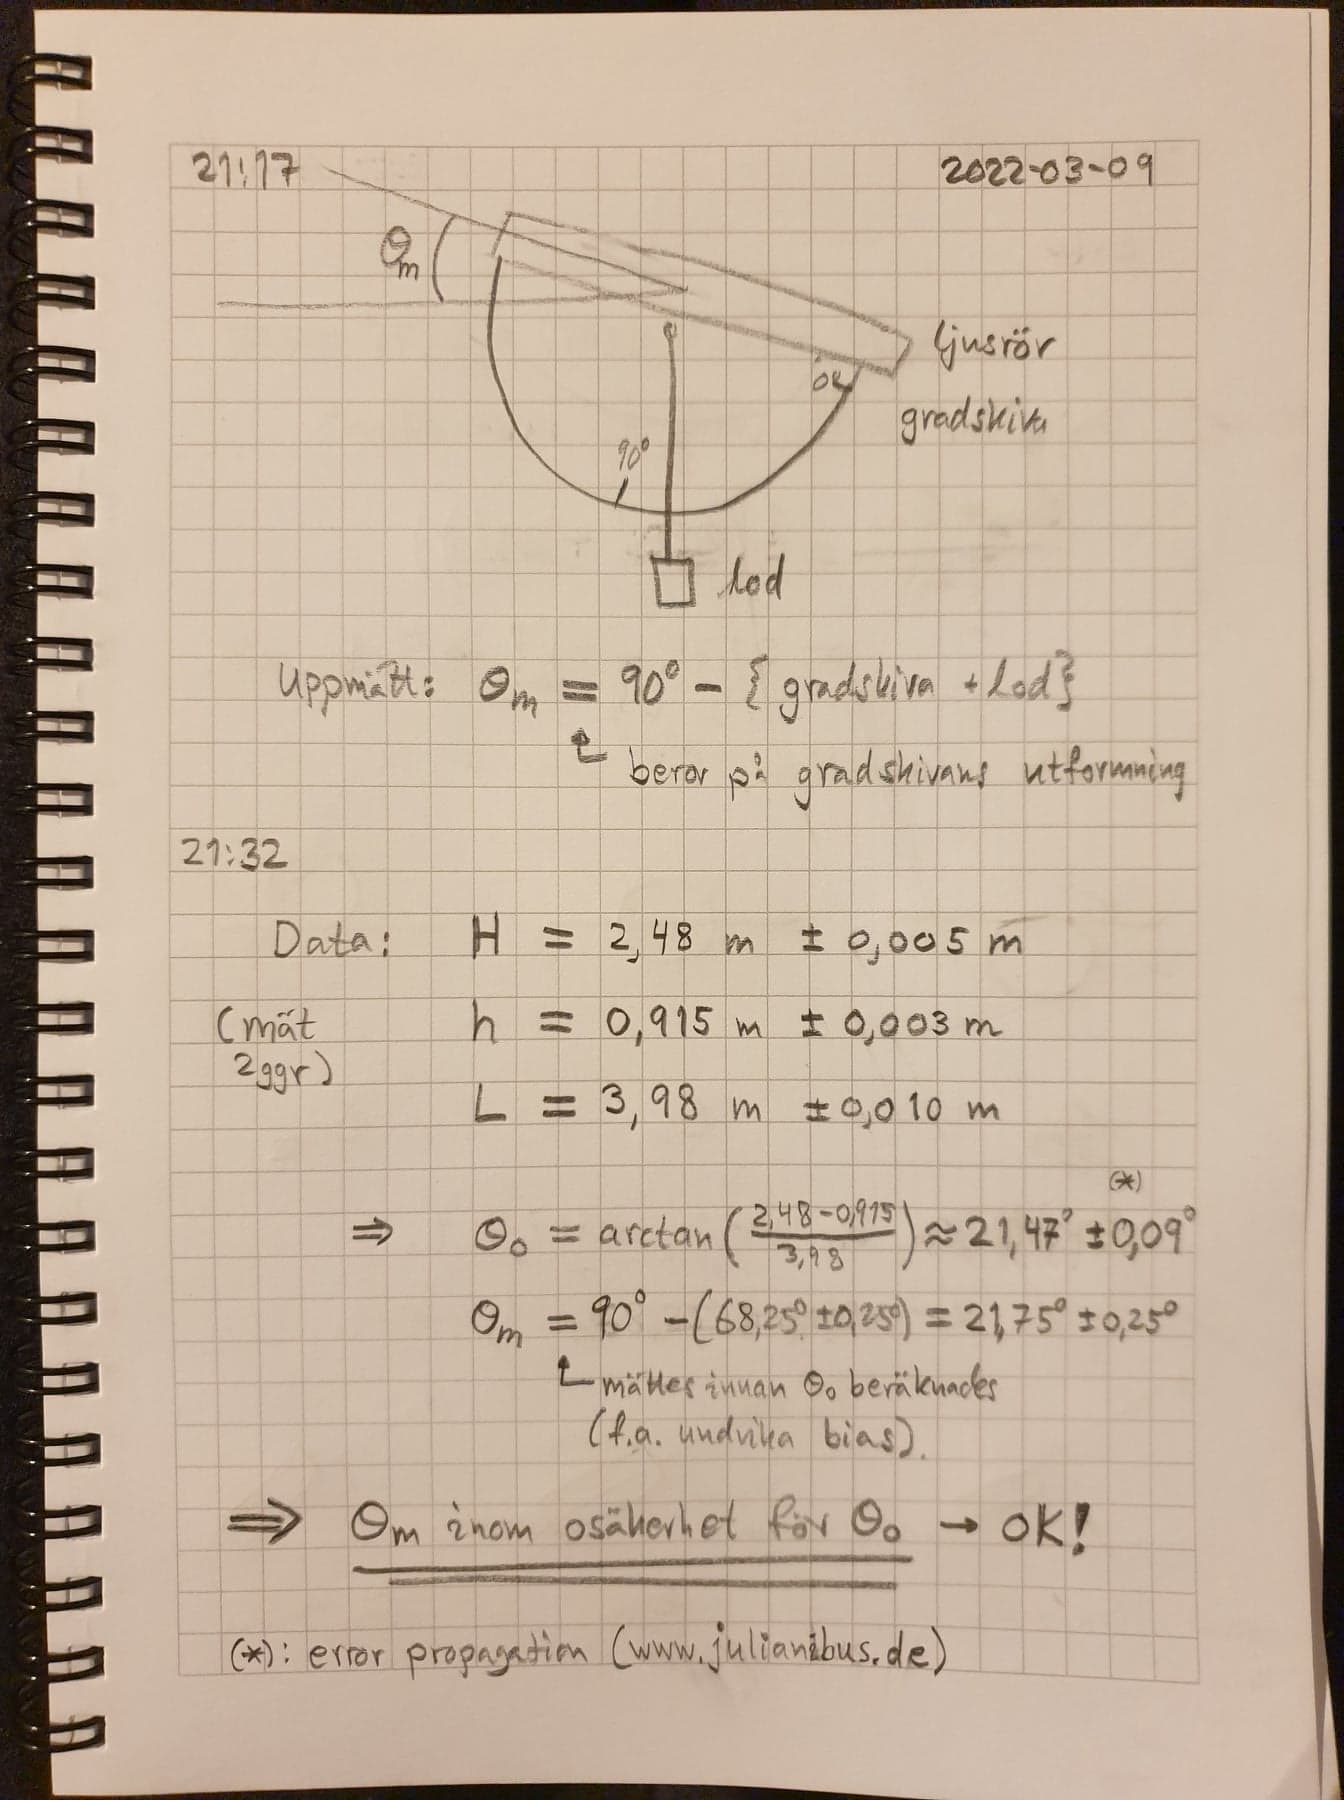 21:17
2022-03-09
θm
ljusrör
0°
gradskiva
90°
lod
Uppmätt: θm = 90° - {gradskiva + Lod}
beror på gradskivans utformning
21:32
Data: H = 2,48 m ± 0,005 m
(mät h = 0,915 m ± 0,003 m
2ggr)
L = 3,98 m ± 0,010 m
(*)
⇒ θ₀ = arctan(2,48-0,915/3,98) ≈ 21,47° ± 0,09°
θm = 90° - (68,25° ± 0,25°) = 21,75° ± 0,25°
mättes innan θ₀ beräknades
(f.a. undvika bias).
⇒ θm inom osäkerhet för θ₀ → OK!
(*): error propagation (www.julianibus.de)